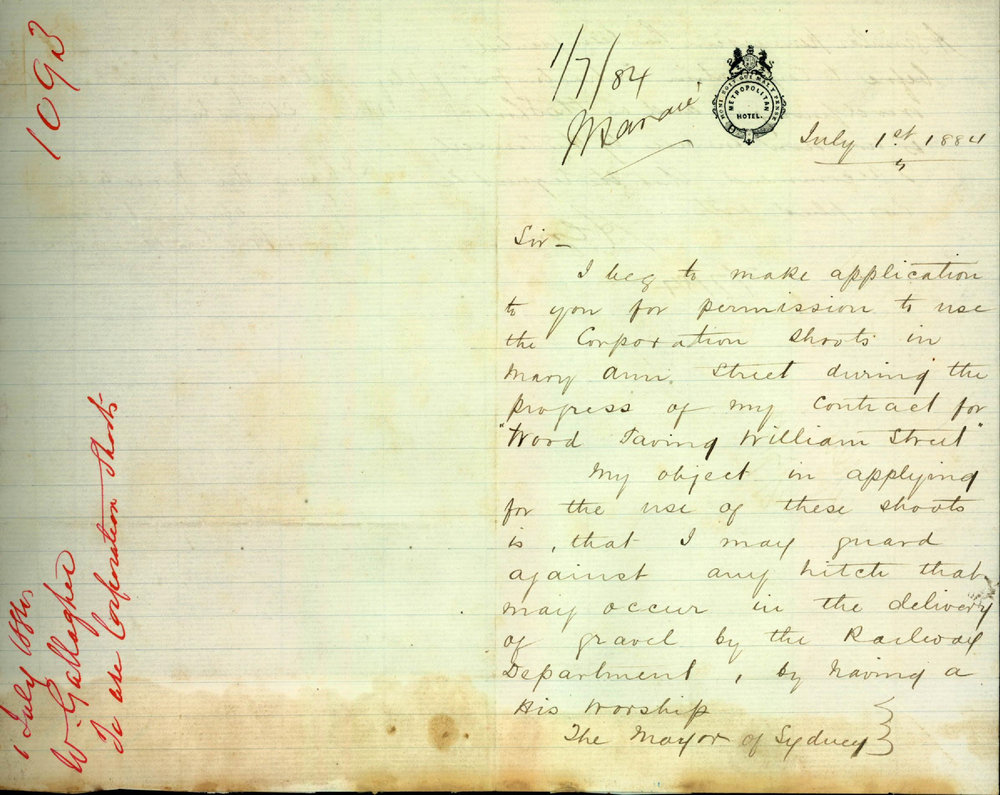 1093
1 July 1884
W. Gallagher
To use Corporation Shoots
1/7/84
HONI SOIT QUI MAL Y PENSE
METROPOLITAN
HOTEL.
July 1st 1884
Sir –
I beg to make application
to you for permission to use
the Corporation Shoots in
Mary Ann. Street during the
progress of my Contract for
"Wood Paving William Street"
My object in applying
for the use of these shoots
is, that I may guard
against any hitch that
may occur in the delivery
of gravel by the Railway
Department, by having a
His Worship
The Mayor of Sydney